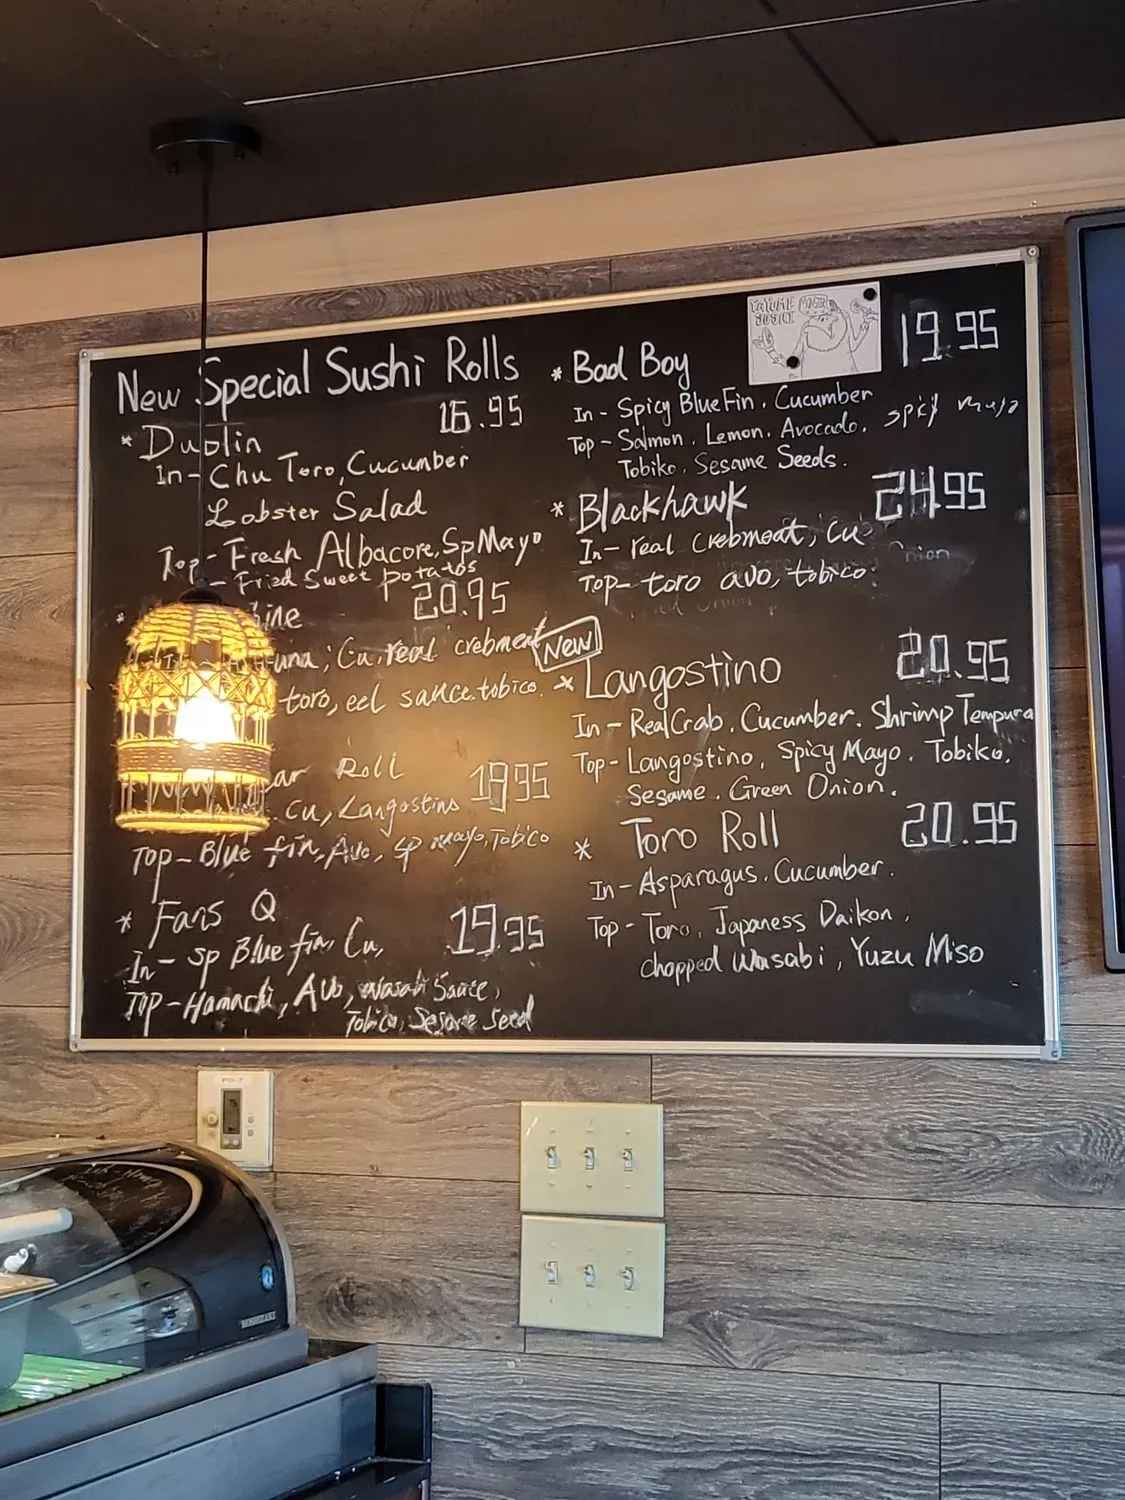 New Special Sushi Rolls
* Dublin 16.95
In - Chu Toro, Cucumber
Lobster Salad
Top - Fresh Albacore, Sp Mayo
- Fried Sweet potatos
* hine 20.95
una, Cu, real crebmeat
toro, eel sauce. tobico.
ar Roll 19.95
Cu, Langostino
Top - Blue fin, Avo, Sp mayo, Tobico
* Fans Q 19.95
In - Sp Blue fin, Cu,
Top - Hamachi, Avo, Wasabi Sauce,
Tobico, Sesame Seed
* Bad Boy 19.95
In - Spicy Blue Fin. Cucumber
Top - Salmon. Lemon. Avocado. spicy mayo
Tobiko. Sesame Seeds.
* Blackhawk 24.95
In - real Crebmeat, Cu
Top - toro avo, tobico
New
* Langostino 20.95
In - Real Crab. Cucumber. Shrimp Tempura
Top - Langostino, Spicy Mayo. Tobiko.
Sesame. Green Onion.
* Toro Roll 20.95
In - Asparagus. Cucumber.
Top - Toro, Japaness Daikon,
chopped Wasabi, Yuzu Miso